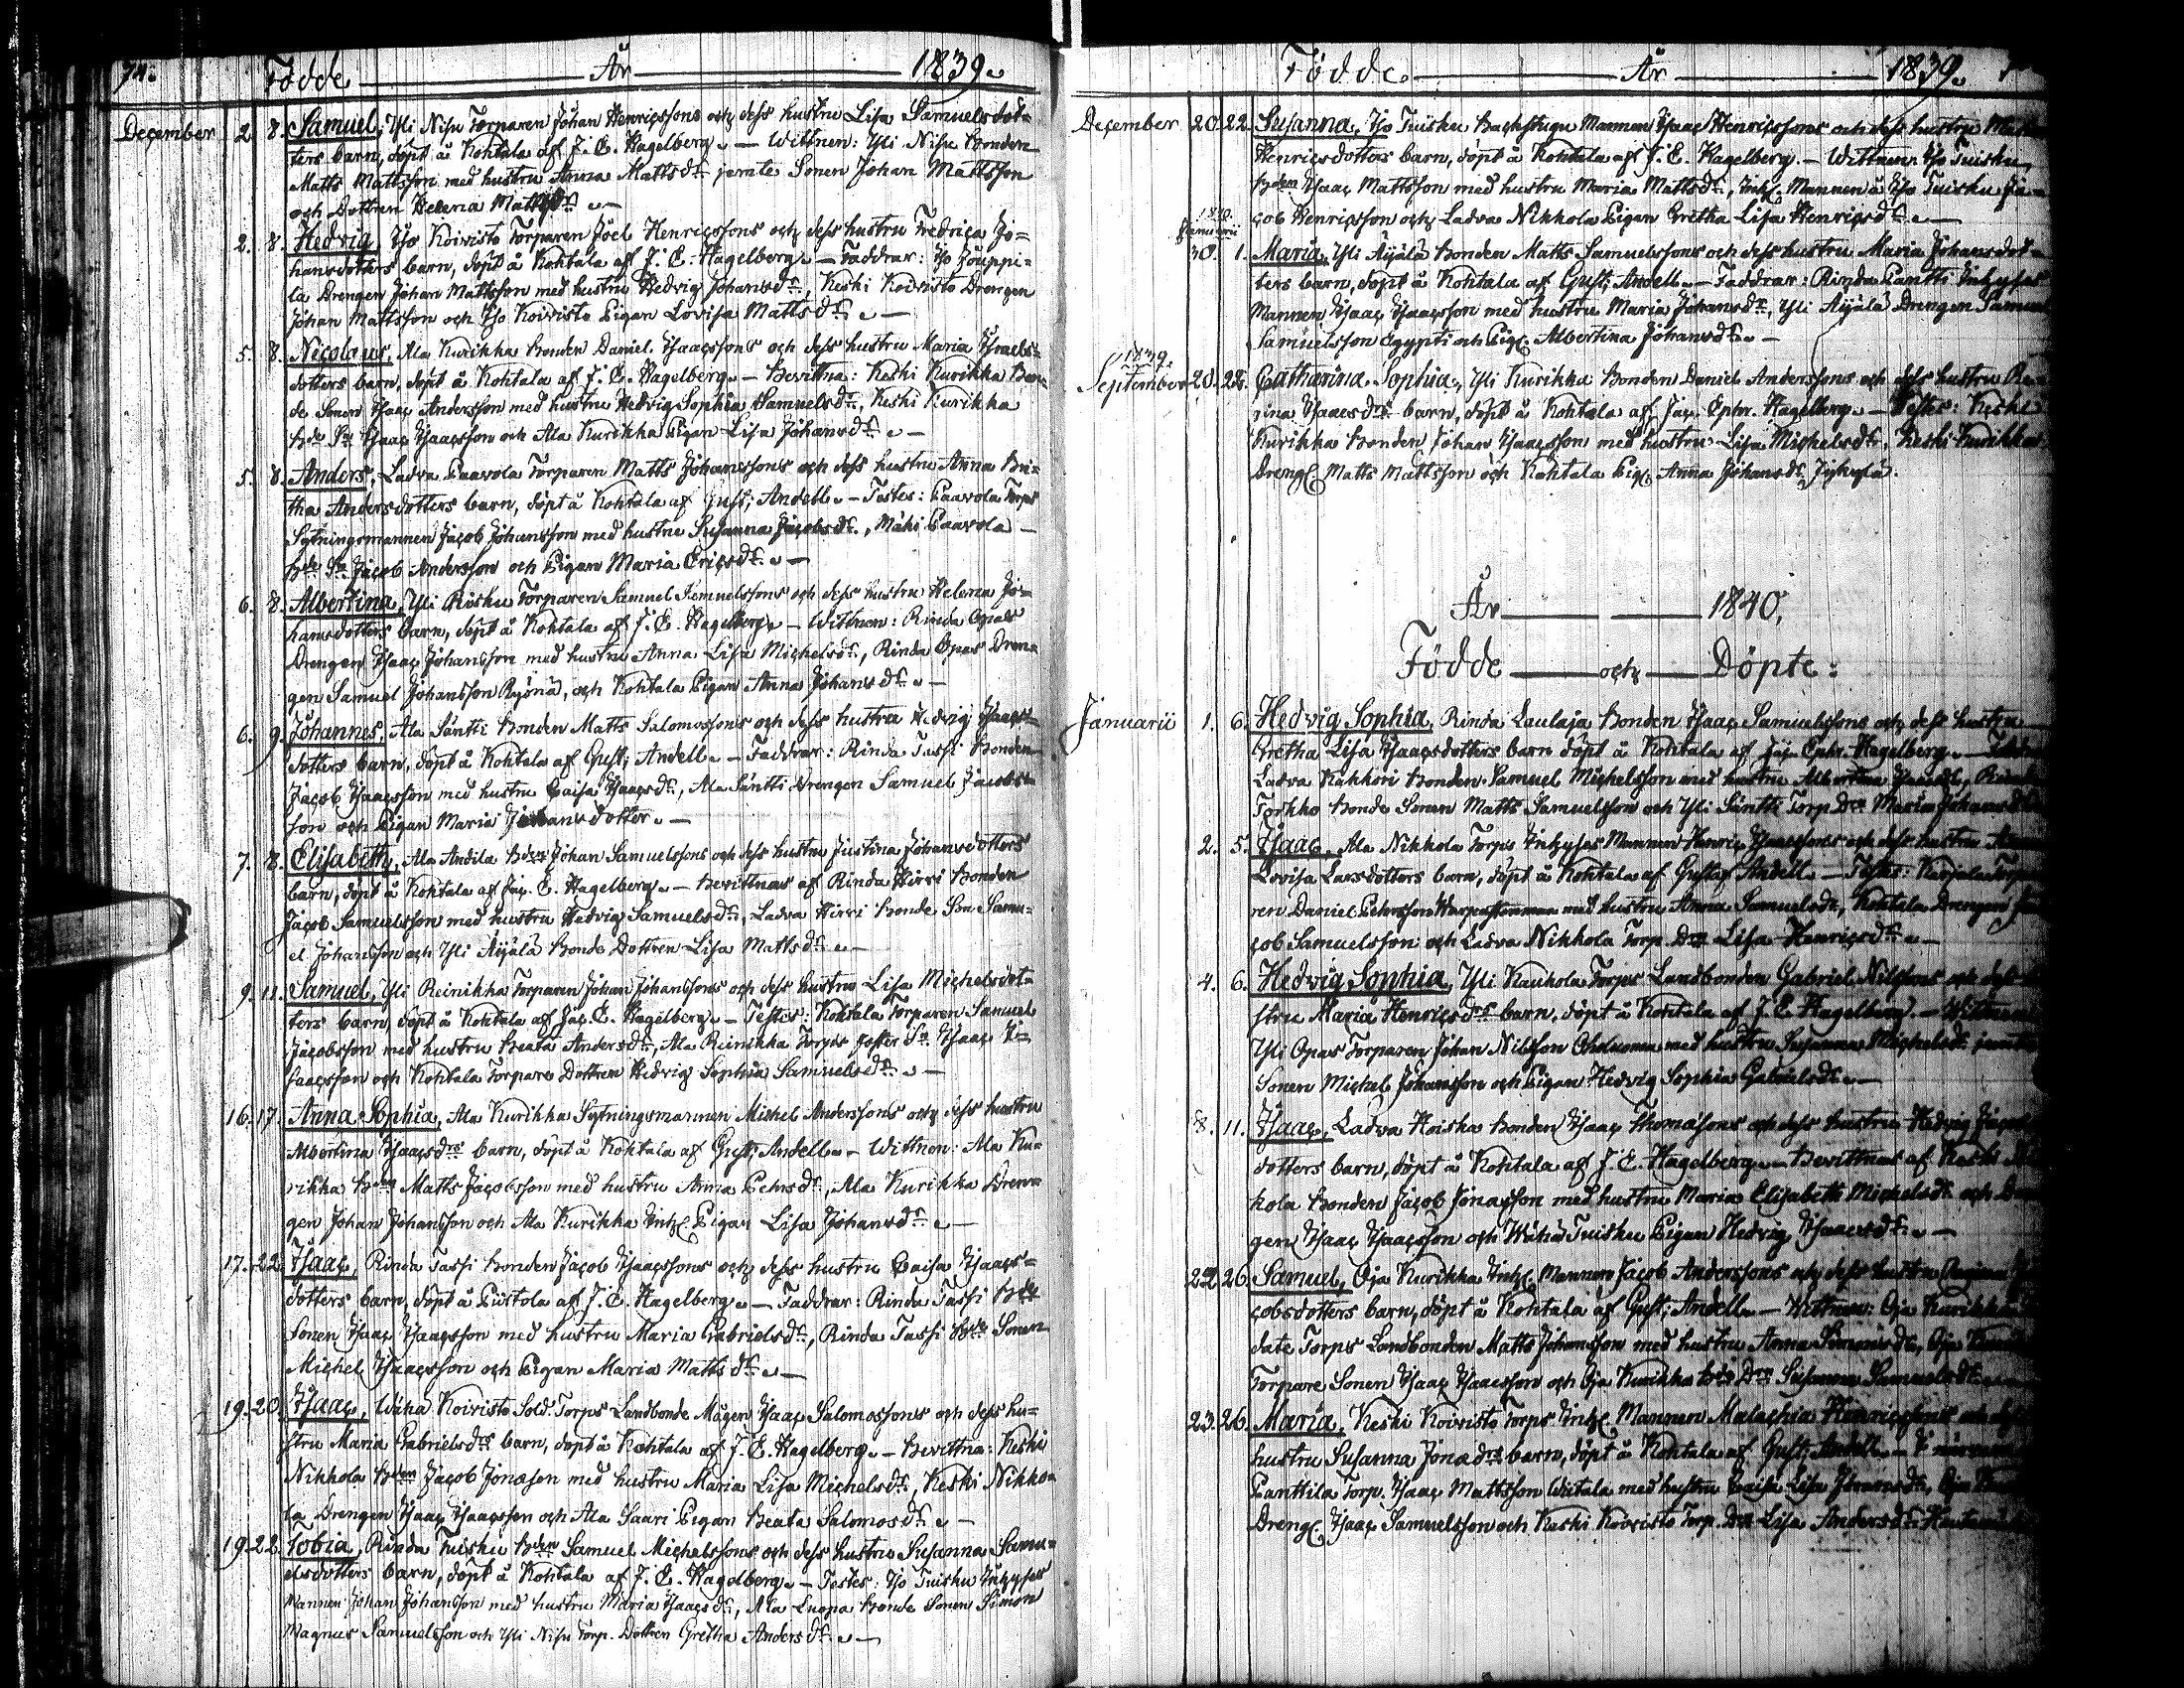 74.
Födde År 1839.
December 2. 8. Samuel, Yli Nisu Torparen Johan Henricssons och dess hustru Lisa Samuelsdot=
ters barn, döpt å Kohtala af J. E. Hagelberg. — Wittnen: Yli Nisu Bonden
Matts Mattsson med hustru Anna Mattsdr jemte Sonen Johan Mattsson
och Dottren Helena Mattsdr. —
2. 8. Hedvig, Iso Koivisto Torparen Joel Henricssons och dess hustru Fredrica Jo=
hansdotters barn, döpt å Kohtala af J. E. Hagelberg. — Faddrar: Iso Jouppi=
la Drengen Johan Mattsson med hustru Hedvig Johansdr, Keski Koivisto Drengen
Johan Mattsson och Iso Koivisto Pigan Lovisa Mattsdr. —
5. 8. Nicolaus, Ala Kurikka Bonden Daniel Isaacssons och dess hustru Maria Israels=
dotters barn, döpt å Kohtala af J. E. Hagelberg. — Bevittna: Keski Kurikka Bon=
de Sonen Isaac Andersson med hustru Hedvig Sophia Samuelsdr, Keski Kurikka
Bde Sn Isaac Isaacsson och Ala Kurikka Pigan Lisa Johansdr. —
5. 8. Anders, Ladva Paavola Torparen Matts Johanssons och dess hustru Anna Bri=
tha Andersdotters barn, döpt å Kohtala af Gust; Andell. — Testes: Paavola Torps
Sytningsmannen Jacob Johansson med hustru Susanna Jacobsdr., Mäki Paavola
Bde Sn Jacob Andersson och Pigan Maria Ericsdr. —
6. 8. Albertina, Yli Risku Torparen Samuel Samuelssons och dess hustru Helena Jo=
hansdotters barn, döpt å Kohtala af J. E. Hagelberg. — Wittnen: Rinda Opas
Drengen Isaac Johansson med hustru Anna Lisa Michelsdr, Rinda Opas Dren=
gen Samuel Johansson Ryönä, och Kohtala Pigan Anna Johansdr. —
6. 9. Johannes, Ala Säntti Bonden Matts Salomossons och dess hustru Hedvig Isaacs=
dotters barn, döpt å Kohtala af Gust; Andell. — Faddrar: Rinda Tassi Bonden
Jacob Isaacsson med hustru Caisa Isaacsdr, Ala Säntti Drengen Samuel Jacobs=
son och Pigan Maria Johansdotter. —
7. 8. Elisabeth, Ala Andila Bden Johan Samuelssons och dess hustru Justina Johansdotters
barn, döpt å Kohtala af Jac. E. Hagelberg. — Bevittnas af Rinda Hirri Bonden
Jacob Samuelsson med hustru Hedvig Samuelsdr, Ladva Hirri Bonde Son Samu=
el Johansson och Yli Äijälä Bonde Dottren Lisa Mattsdr. —
9. 11. Samuel, Yli Reinikka Torparen Johan Johanssons och dess hustru Lisa Michelsdot=
ters barn, döpt å Kohtala af Jac. E. Hagelberg. — Testes: Kohtala Torparen Samuel
Jacobsson med hustru Beata Andersdr, Ala Reinikka Torps foster Sn Isaac I=
saacsson och Kohtala Torpare Dottren Hedvig Sophia Samuelsdr. —
16. 17. Anna Sophia, Ala Kurikka Sytningsmannen Michel Anderssons och dess hustru
Albertina Isaacsdrs barn, döpt å Kohtala af Gust; Andell. — Wittnen: Ala Ku=
rikka Bden Matts Jacobsson med hustru Anna Pehrsdr, Ala Kurikka Dren=
gen Johan Johansson och Ala Kurikka Inh: Pigan Lisa Johansdr. —
17. 22. Isaac, Rinda Tassi Bonden Jacob Isaacssons och dess hustru Caisa Isaacs=
dotters barn, döpt å Piistola af J. E. Hagelberg. — Faddrar: Rinda Tassi Bde
Sonen Isaac Isaacsson med hustru Maria Gabrielsdr, Rinda Tassi Bde Sonen
Michel Isaacsson och Pigan Maria Mattsdr. —
19. 20. Isaac, Wäha Koivisto Sold. Torps Landbonde Mågen Isaac Salomossons och dess hu=
stru Maria Gabrielsdrs barn, döpt å Kohtala af J. E. Hagelberg. — Bevittna: Keski
Nikkola Bden Jacob Jonæson med hustru Maria Lisa Michelsdr, Keski Nikko=
la Drengen Isaac Isaacsson och Ala Saari Pigan Beata Salomosdr. —
19. 22. Tobia, Rinda Tuisku Bden Samuel Michelssons och dess hustru Susanna Samu=
elsdotters barn, döpt å Kohtala af J. E. Hagelberg. — Testes: Iso Tuisku Inhyses
Mannen Johan Johansson med hustru Maria Isaacsdr, Ala Luopa Bonde Sonen Simon
Magnus Samuelsson och Yli Nisu Torp. Dottren Gretha Andersdr. —
Födde År 1839.
December 20. 22. Susanna, Iso Tuisku Backstugu Mannen Isaac Henricssons och dess hustru
Henricsdotters barn, döpt å Kohtala af J. E. Hagelberg. — Wittnen: Iso Tuisku
Bden Isaac Mattsson med hustru Maria Mattsdr, Inh: Mannen å Iso Tuisku Ja=
cob Henricsson och Ladva Nikkola Pigan Gretha Lisa Henricsdr. —
1840.
Januarii
30. 1. Maria, Yli Äijälä Bonden Matts Samuelssons och dess hustru Maria Johansdot=
ters barn, döpt å Kohtala af Gust; Andell. — Faddrar: Rinda Pantti Inhyses
Mannen Isaac Isaacsson med hustru Maria Johansdr, Yli Äijälä Drengen Samuel
Samuelsson Egypti och Pig: Albertina Johansdr. —
1839.
September 20. 28. Catharina Sophia, Yli Kurikka Bonden Daniel Anderssons och dess hustru Re=
gina Isaacsdrs barn, döpt å Kohtala af Jac. Ephr. Hagelberg. — Testes: Keski
Kurikka Bonden Johan Isaacsson med hustru Lisa Michelsdr, Keski Kurikka
Dreng: Matts Mattsson och Kohtala Pig: Anna Johansdr
År 1840.
Födde och Döpte:
Januarii 1. 6. Hedvig Sophia, Rinda Laulaja Bonden Isaac Samuelssons och dess hustru
Gretha Lisa Isaacsdotters barn döpt å Kohtala af Jac. Ephr. Hagelberg. —
Ladva Kakkori Bonden Samuel Michelsson med hustru Albertina
Torkko Bonde Sonen Matts Samuelsson och Yli Säntti Torp. Dr Maria Johansdr
2. 5. Isaac, Ala Nikkola Torps Inhyses Mannen Henric Isaacssons och dess hustru
Lovisa Larsdotters barn, döpt å Kohtala af Gustaf Andell — Testes: Karjala
ren Daniel Pehrsson med hustru Anna Samuelsdr, Kohtala Drengen Ja=
cob Samuelsson och Ladva Nikkola Torp. Dr Lisa Henricsdr. —
4. 6. Hedvig Sophia, Yli Kaukola Torps Landbonden Gabriel Nilssons och dess
stru Maria Henricsdrs barn, döpt å Kohtala af J. E. Hagelberg. — Wittnen
Yli Opas Torparen Johan Nilsson med hustru Susanna Michelsdr jemte
Sonen Michel Johansson och Pigan Hedvig Sophia Gabrielsdr. —
8. 11. Isaac, Ladva Koiska Bonden Isaac Thomæsons och dess hustru Hedvig
dotters barn, döpt å Kohtala af J. E. Hagelberg. — Bevittnas af Keski
kola Bonden Jacob Jonasson med hustru Maria Elisabeth Michelsdr och
gen Isaac Isaacsson och Wähä Tuisku Pigan Hedvig Isaacsdr. —
22. 26. Samuel, Oja Kurikka Inh: Mannen Jacob Anderssons och dess hustru Regina
cobsdotters barn, döpt å Kohtala af Gust; Andell. — Wittnen: Oja Kurikka
date Torps Landbonden Matts Johansson med hustru Anna Oja
Torpare Sonen Isaac Isaacsson och Oja Kurikka Bde Dr Susanna Samuelsdr
23. 26. Maria, Keski Koivisto Torps Inh: Mannen Malachia Henricssons och
hustru Susanna Jonædrs barn, döpt å Kohtala af Gust; Andell. —
Panttila Torp. Isaac Mattsson Witala med hustru Caisa Lisa Oja
Dreng: Isaac Samuelsson och Keski Koivisto Torp. Dr Lisa Andersdr